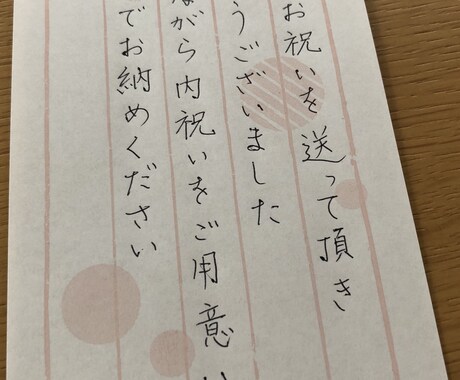 お祝いを送って頂き
うございました
ながら内祝いをご用意い
でお納めください